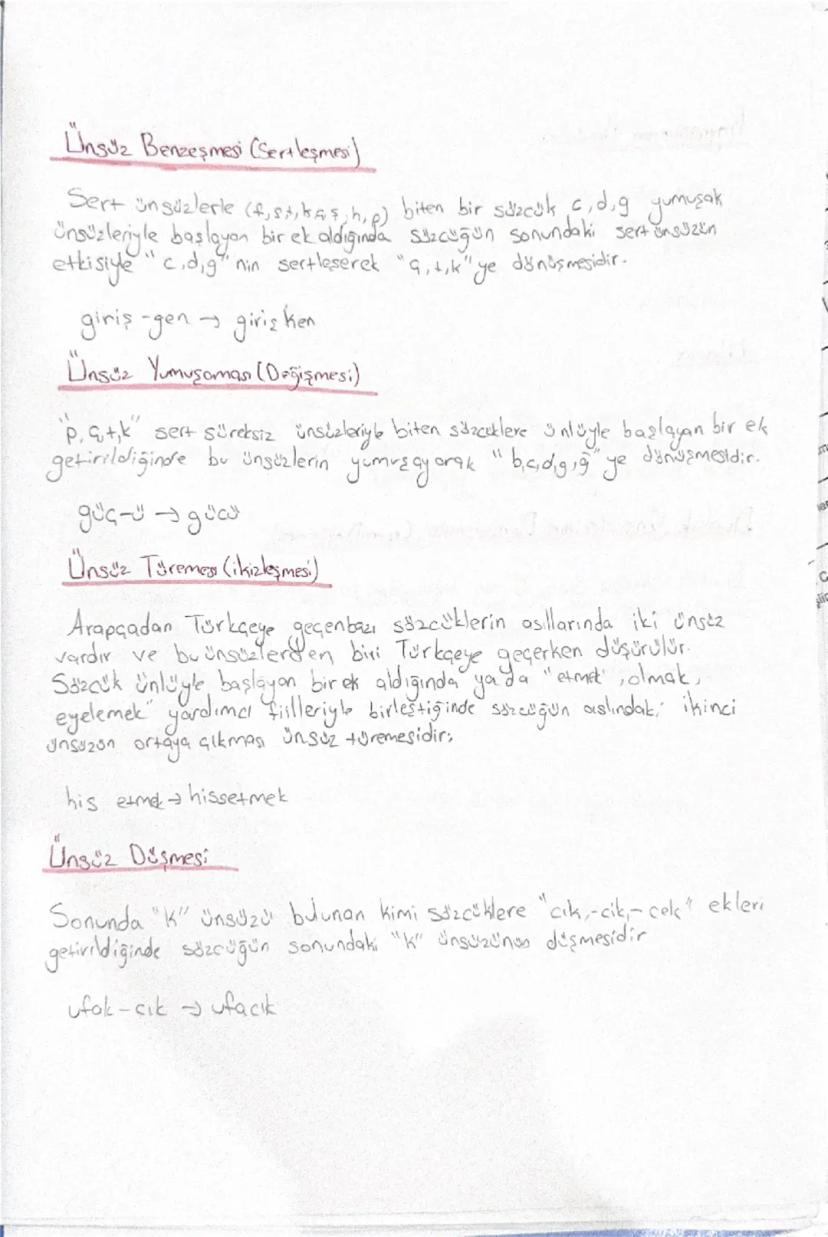 Ünsüz Benzeşmesi (Sertleşmesi)
Sert ünsüzlerle (f,s,t,k,ç,ş,h,p) biten bir sözcük c,d,g yumuşak
ünsüzleriyle başlayan bir ek aldığında sözcüğün sonundaki sert ünsüzün
etkisiyle "c,d,g"nin sertleşerek "ç,t,k"ye dönüşmesidir.
giriş-gen → girişken
Ünsüz Yumuşaması (Değişmesi)
"p,ç,t,k" sert süreksiz ünsüzleriyle biten sözcüklere ünlüyle başlayan bir ek
getirildiğinde bu ünsüzlerin yumuşayarak "b,c,d,g,ğ"ye dönüşmesidir.
güç-ü → gücü
Ünsüz Türemesi (ikizleşmesi)
Arapçadan Türkçeye geçen bazı sözcüklerin asıllarında iki ünsüz
vardır ve bu ünsüzlerden biri Türkçeye geçerken düşürülür.
Sözcük ünlüyle başlayan bir ek aldığında ya da "etmek", olmak,
eyelemek" yardımcı fiilleriyle birleştiğinde sözcüğün aslındaki ikinci
ünsüzün ortaya çıkması ünsüz türemesidir;
his etmek → hissetmek
Ünsüz Düşmesi
Sonunda "k" ünsüzü bulunan kimi sözcüklere "cık,-cik,-cek" ekleri
getirildiğinde sözcüğün sonundaki "k" ünsüzünün düşmesidir
ufak-cık → ufacık